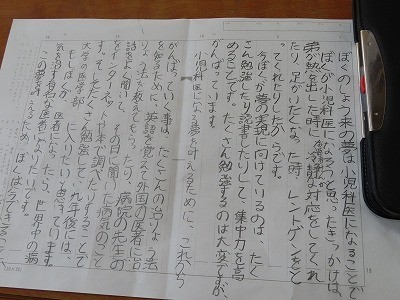 ぼくのしょう来の夢は小児科医になることで
ぼくが小児科医になろうと思ったきっかけは、
弟が熱を出した時に、対応をしてくれ
たり、足がいたくなった時、レントゲンをと
てくれたりしたからです。
今ぼくが夢の実現に向けているのは、たく
さん勉強したり読書したりして、集中力を高
めることです。たくさん勉強するのは大変ですが
がんばっています。
小児科医になる夢を叶えるために、これから
がんばっていく事は、たくさんの治りょう法
を知るために、英語を覚えて外国の医者に治
りょう法を教えてもらったり、病院の先生の
話をよく聞いて、その日に聞いた病気のこと
をインターネットや本で調べたりすることで
す。そしてたくさん勉強して、九年後には、
大学の医学部に入りたいと思っています。
もしぼくが、医者になったら、世界中の病
気を治す有名な医者になりたいです。
この夢を叶えるため、ぼくは